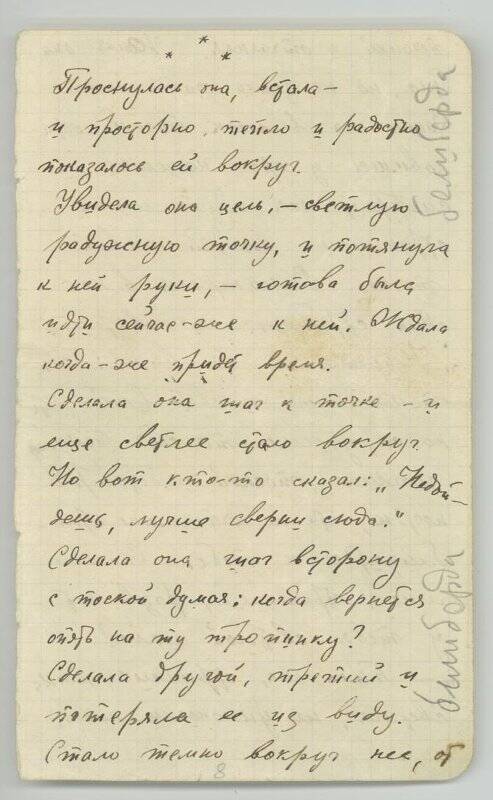 * * *
Проснулась она, встала –
и просторно, тепло и радостно
показалось ей вокруг.
Увидела она цель, – светлую
радужную точку, и потянула
к ней руки, – готова была
идти сейчас-же к ней. Ждала
когда-же придет время.
Сделала она шаг к точке – и
еще светлее стало вокруг.
Но вот кто-то сказал: „Недой-
дешь, лучше сверни сюда."
Сделала она шаг всторону
с тоской думая: когда вернется
опять на ту тропинку?
Сделала другой, третий и
потеряла ее из виду.
Стало темно вокруг нее, от
8
белиберда
белиберда